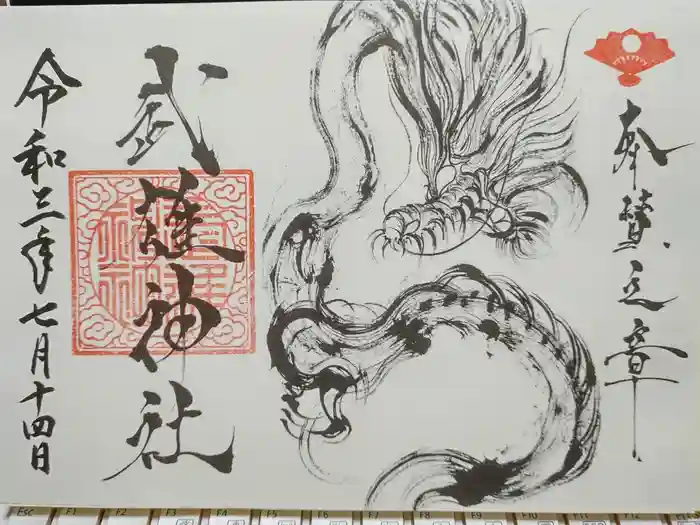 奉賛之章
武護神社
令和三年七月十四日
Esc
F1
F2
F3
F4
F5
F6
F7
F8
F9
F10
F11
F12